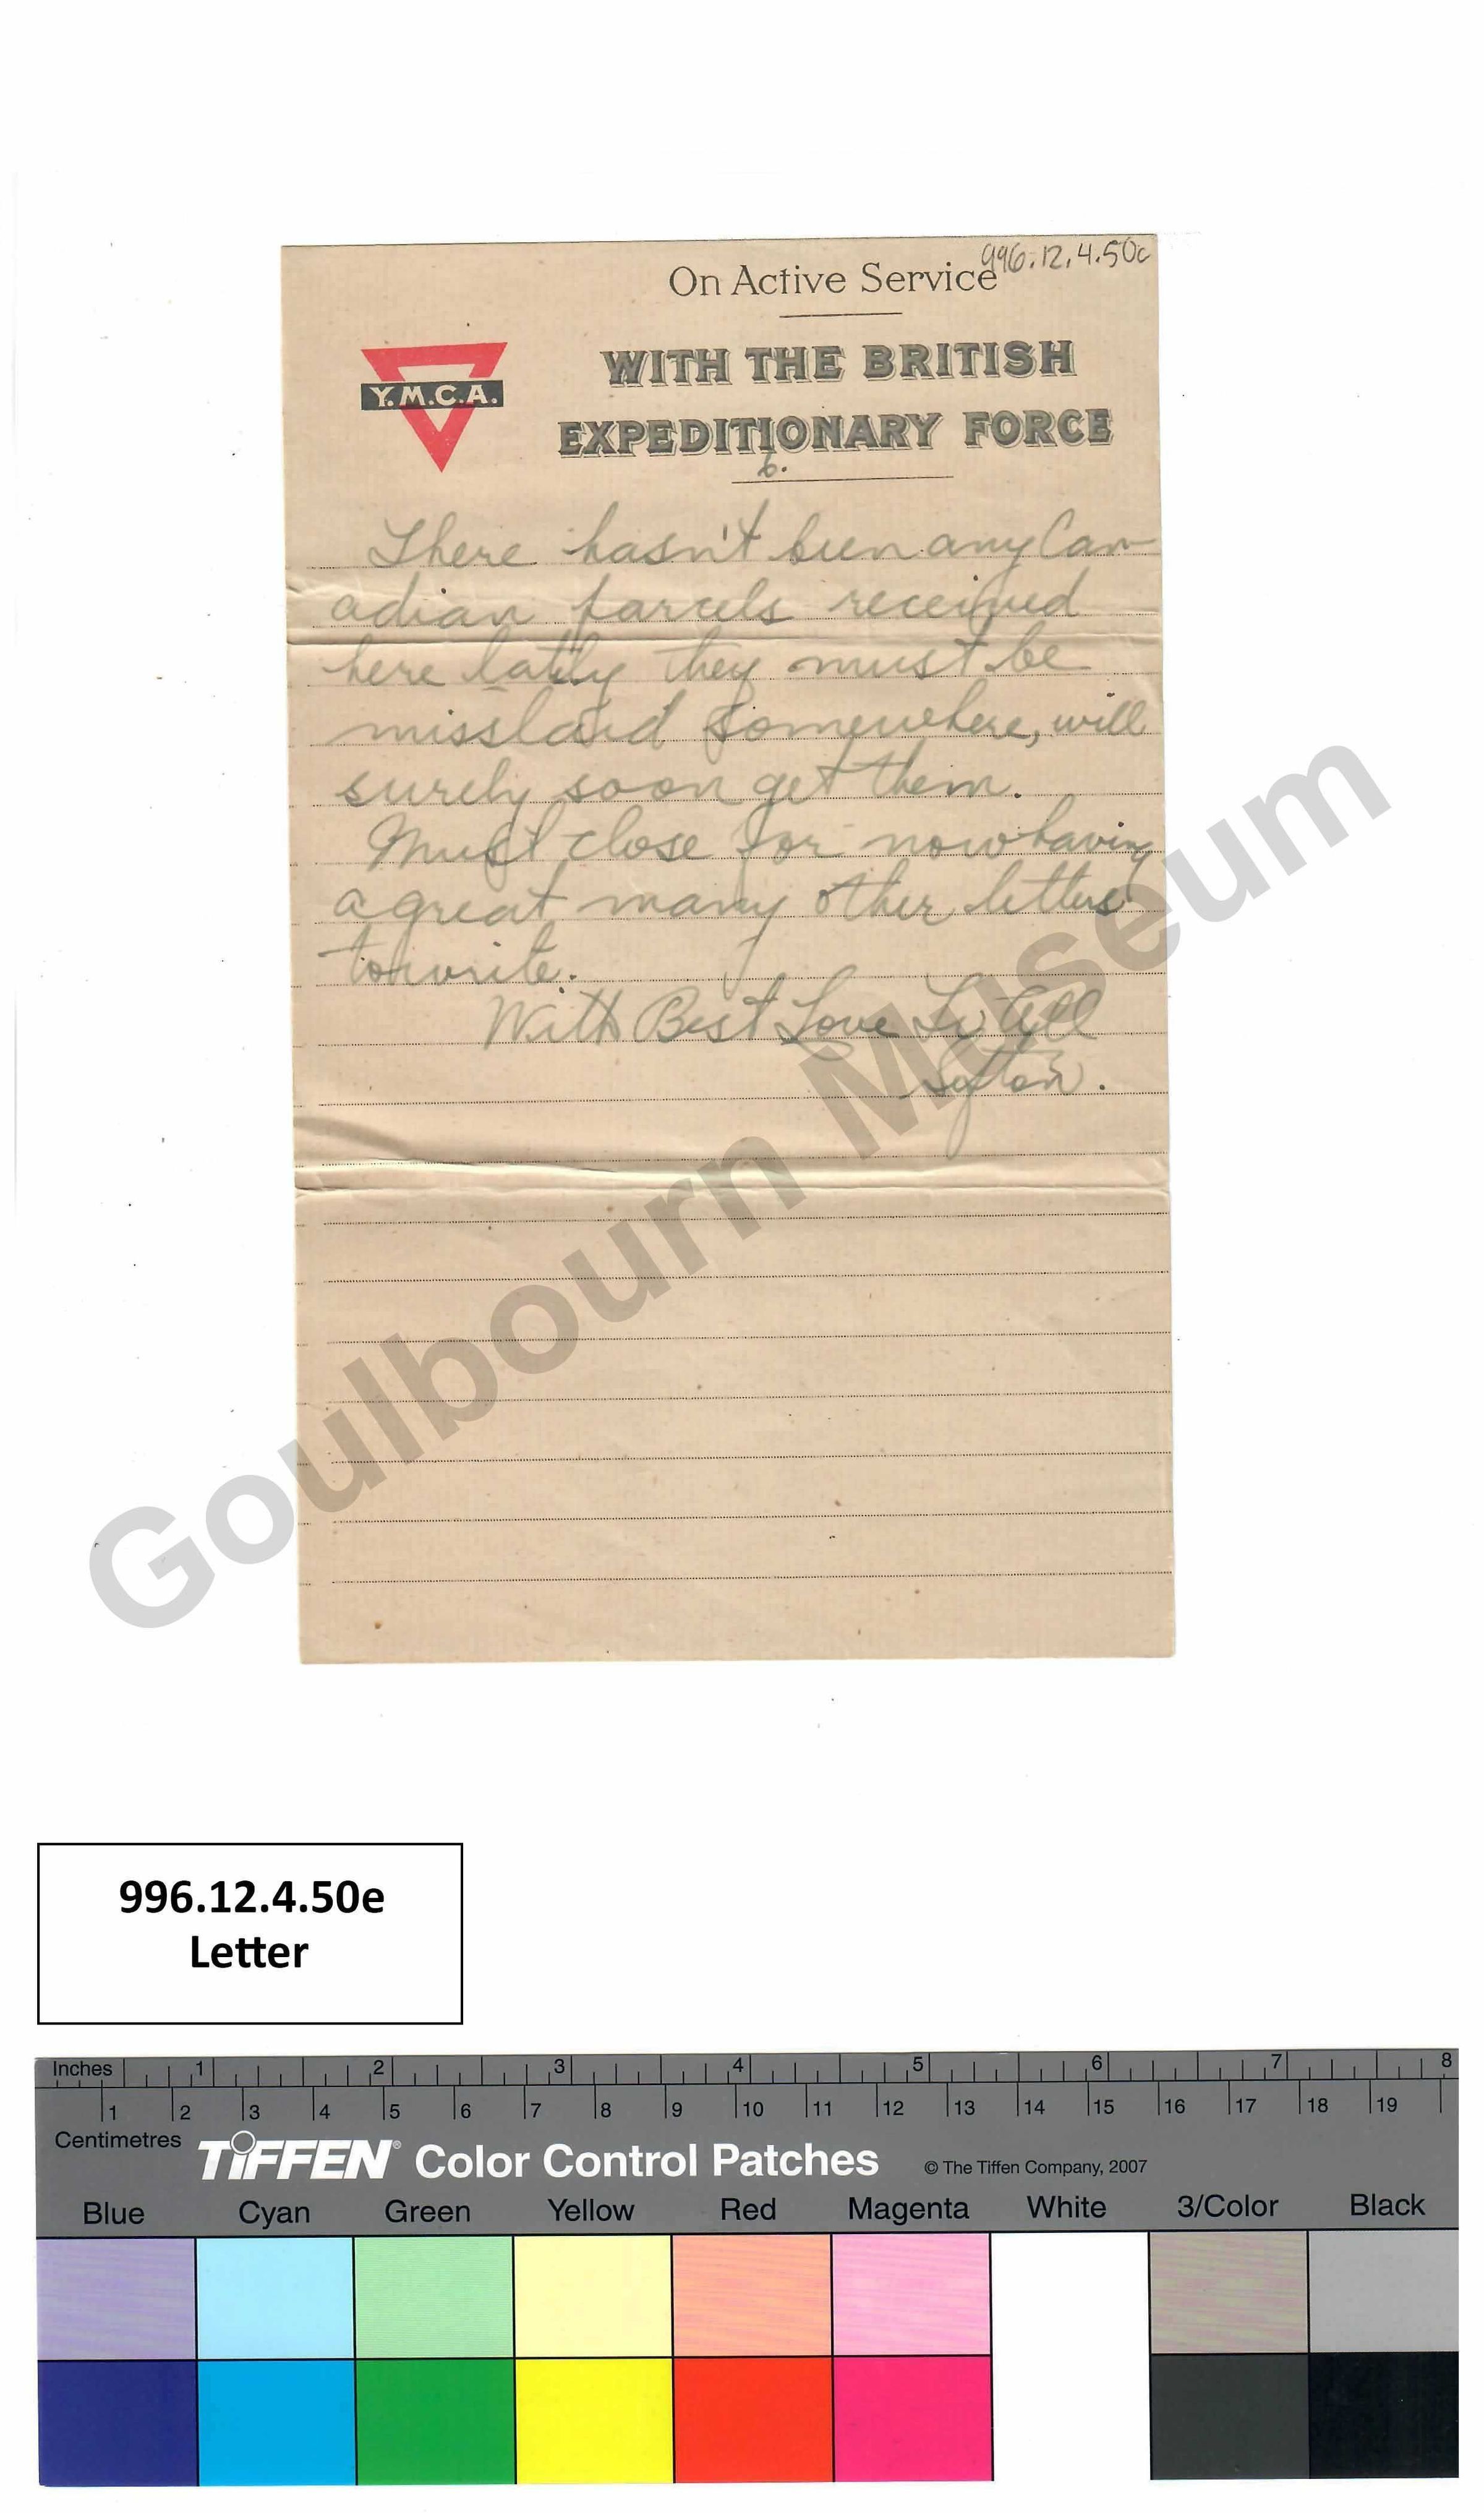 996.12.4.50c
On Active Service
Y.M.C.A.
WITH THE BRITISH
EXPEDITIONARY FORCE
6.
There hasn't been any Can
adian parcels received
here lately they must be
misslaid somewhere, will
surely soon get them.
Must close for now having
a great many other letters
to write.
With Best Love To All
Goulbourn Museum
996.12.4.50e
Letter
Inches 1 2 3 4 5 6 7 8
1 2 3 4 5 6 7 8 9 10 11 12 13 14 15 16 17 18 19
Centimetres
TIFFEN® Color Control Patches © The Tiffen Company, 2007
Blue Cyan Green Yellow Red Magenta White 3/Color Black